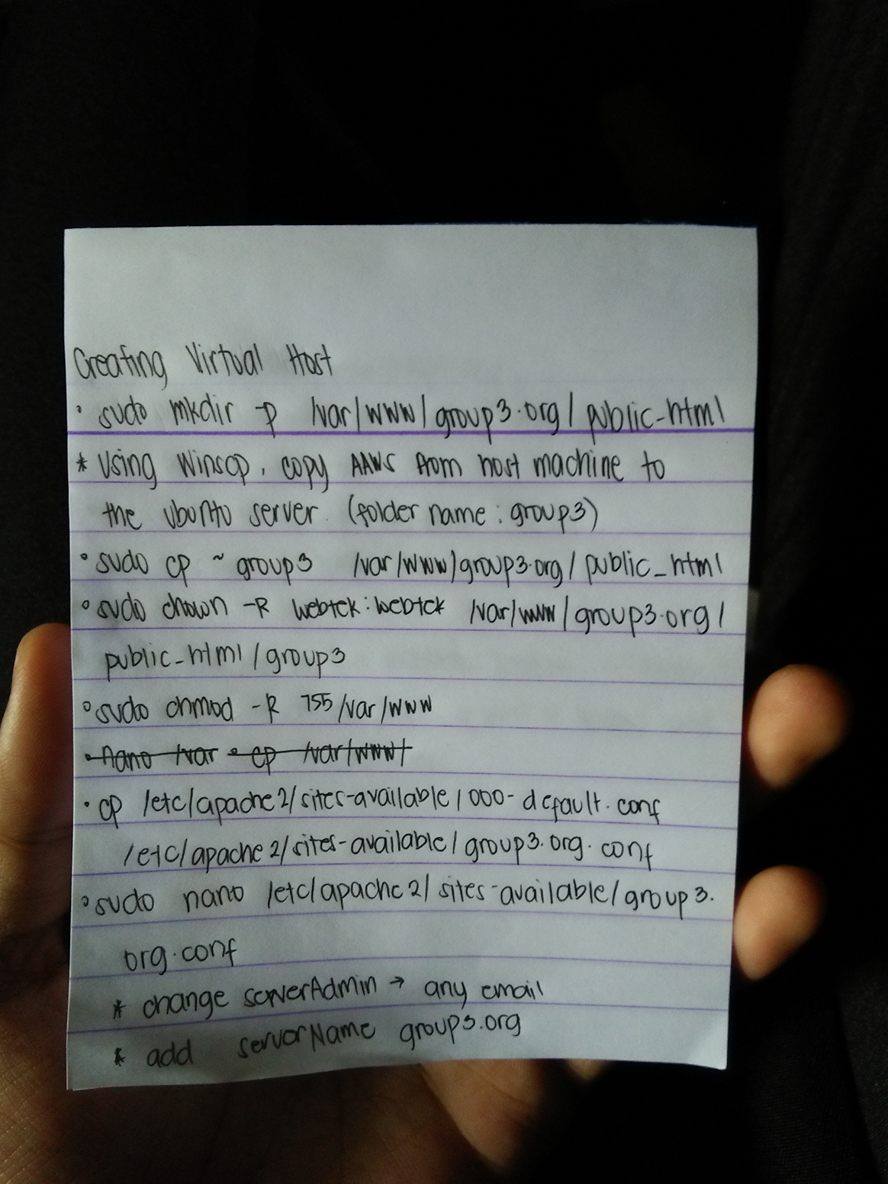 Creating Virtual Host
• sudo mkdir -p /var/www/group3.org/public-html
* Using Winscp, copy AAWS from host machine to
the Ubunto server. (folder name: group3)
• sudo cp ~ group3 /var/www/group3.org/public_html
• sudo chown -R webtek:webtek /var/www/group3.org/
public_html/group3
• sudo chmod -R 755 /var/www
• nano /var • cp /var/www/
• cp /etc/apache2/sites-available/000-default.conf
/etc/apache2/sites-available/group3.org.conf
• sudo nano /etc/apache2/sites-available/group3.
org.conf
* change serverAdmin → any email
* add serverName group3.org